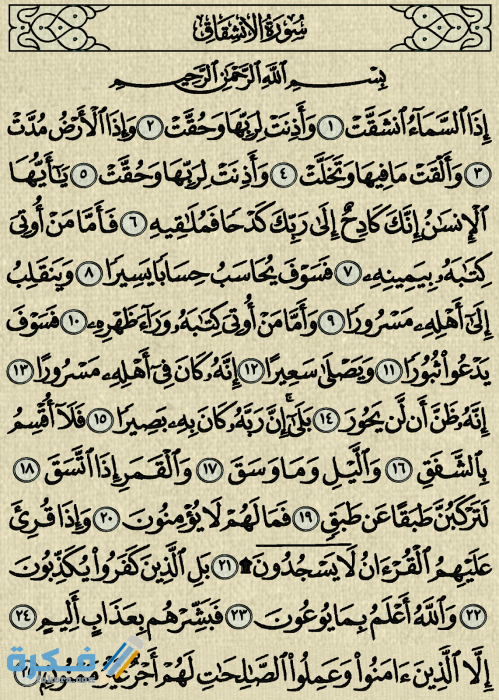 سُورَةُ الِانْشِقَاقِ
بِسْمِ اللَّهِ الرَّحْمَٰنِ الرَّحِيمِ
إِذَا السَّمَاءُ انشَقَّتْ ١ وَأَذِنَتْ لِرَبِّهَا وَحُقَّتْ ٢ وَإِذَا الْأَرْضُ مُدَّتْ
٣ وَأَلْقَتْ مَا فِيهَا وَتَخَلَّتْ ٤ وَأَذِنَتْ لِرَبِّهَا وَحُقَّتْ ٥ يَٰأَيُّهَا
الْإِنسَٰنُ إِنَّكَ كَادِحٌ إِلَىٰ رَبِّكَ كَدْحًا فَمُلَٰقِيهِ ٦ فَأَمَّا مَنْ أُوتِيَ
كِتَٰبَهُۥ بِيَمِينِهِۦ ٧ فَسَوْفَ يُحَاسَبُ حِسَابًا يَسِيرًا ٨ وَيَنقَلِبُ
إِلَىٰ أَهْلِهِۦ مَسْرُورًا ٩ وَأَمَّا مَنْ أُوتِيَ كِتَٰبَهُۥ وَرَاءَ ظَهْرِهِۦ ١٠ فَسَوْفَ
يَدْعُوا ثُبُورًا ١١ وَيَصْلَىٰ سَعِيرًا ١٢ إِنَّهُۥ كَانَ فِي أَهْلِهِۦ مَسْرُورًا ١٣
إِنَّهُۥ ظَنَّ أَن لَّن يَحُورَ ١٤ بَلَىٰ إِنَّ رَبَّهُۥ كَانَ بِهِۦ بَصِيرًا ١٥ فَلَا أُقْسِمُ
بِالشَّفَقِ ١٦ وَالَّيْلِ وَمَا وَسَقَ ١٧ وَالْقَمَرِ إِذَا اتَّسَقَ ١٨
لَتَرْكَبُنَّ طَبَقًا عَن طَبَقٍ ١٩ فَمَا لَهُمْ لَا يُؤْمِنُونَ ٢٠ وَإِذَا قُرِئَ
عَلَيْهِمُ الْقُرْءَانُ لَا يَسْجُدُونَ ۩ ٢١ بَلِ الَّذِينَ كَفَرُوا يُكَذِّبُونَ
٢٢ وَاللَّهُ أَعْلَمُ بِمَا يُوعُونَ ٢٣ فَبَشِّرْهُم بِعَذَابٍ أَلِيمٍ ٢٤
إِلَّا الَّذِينَ ءَامَنُوا وَعَمِلُوا الصَّٰلِحَٰتِ لَهُمْ أَجْرٌ غَيْرُ مَمْنُونٍ ٢٥
فكرة